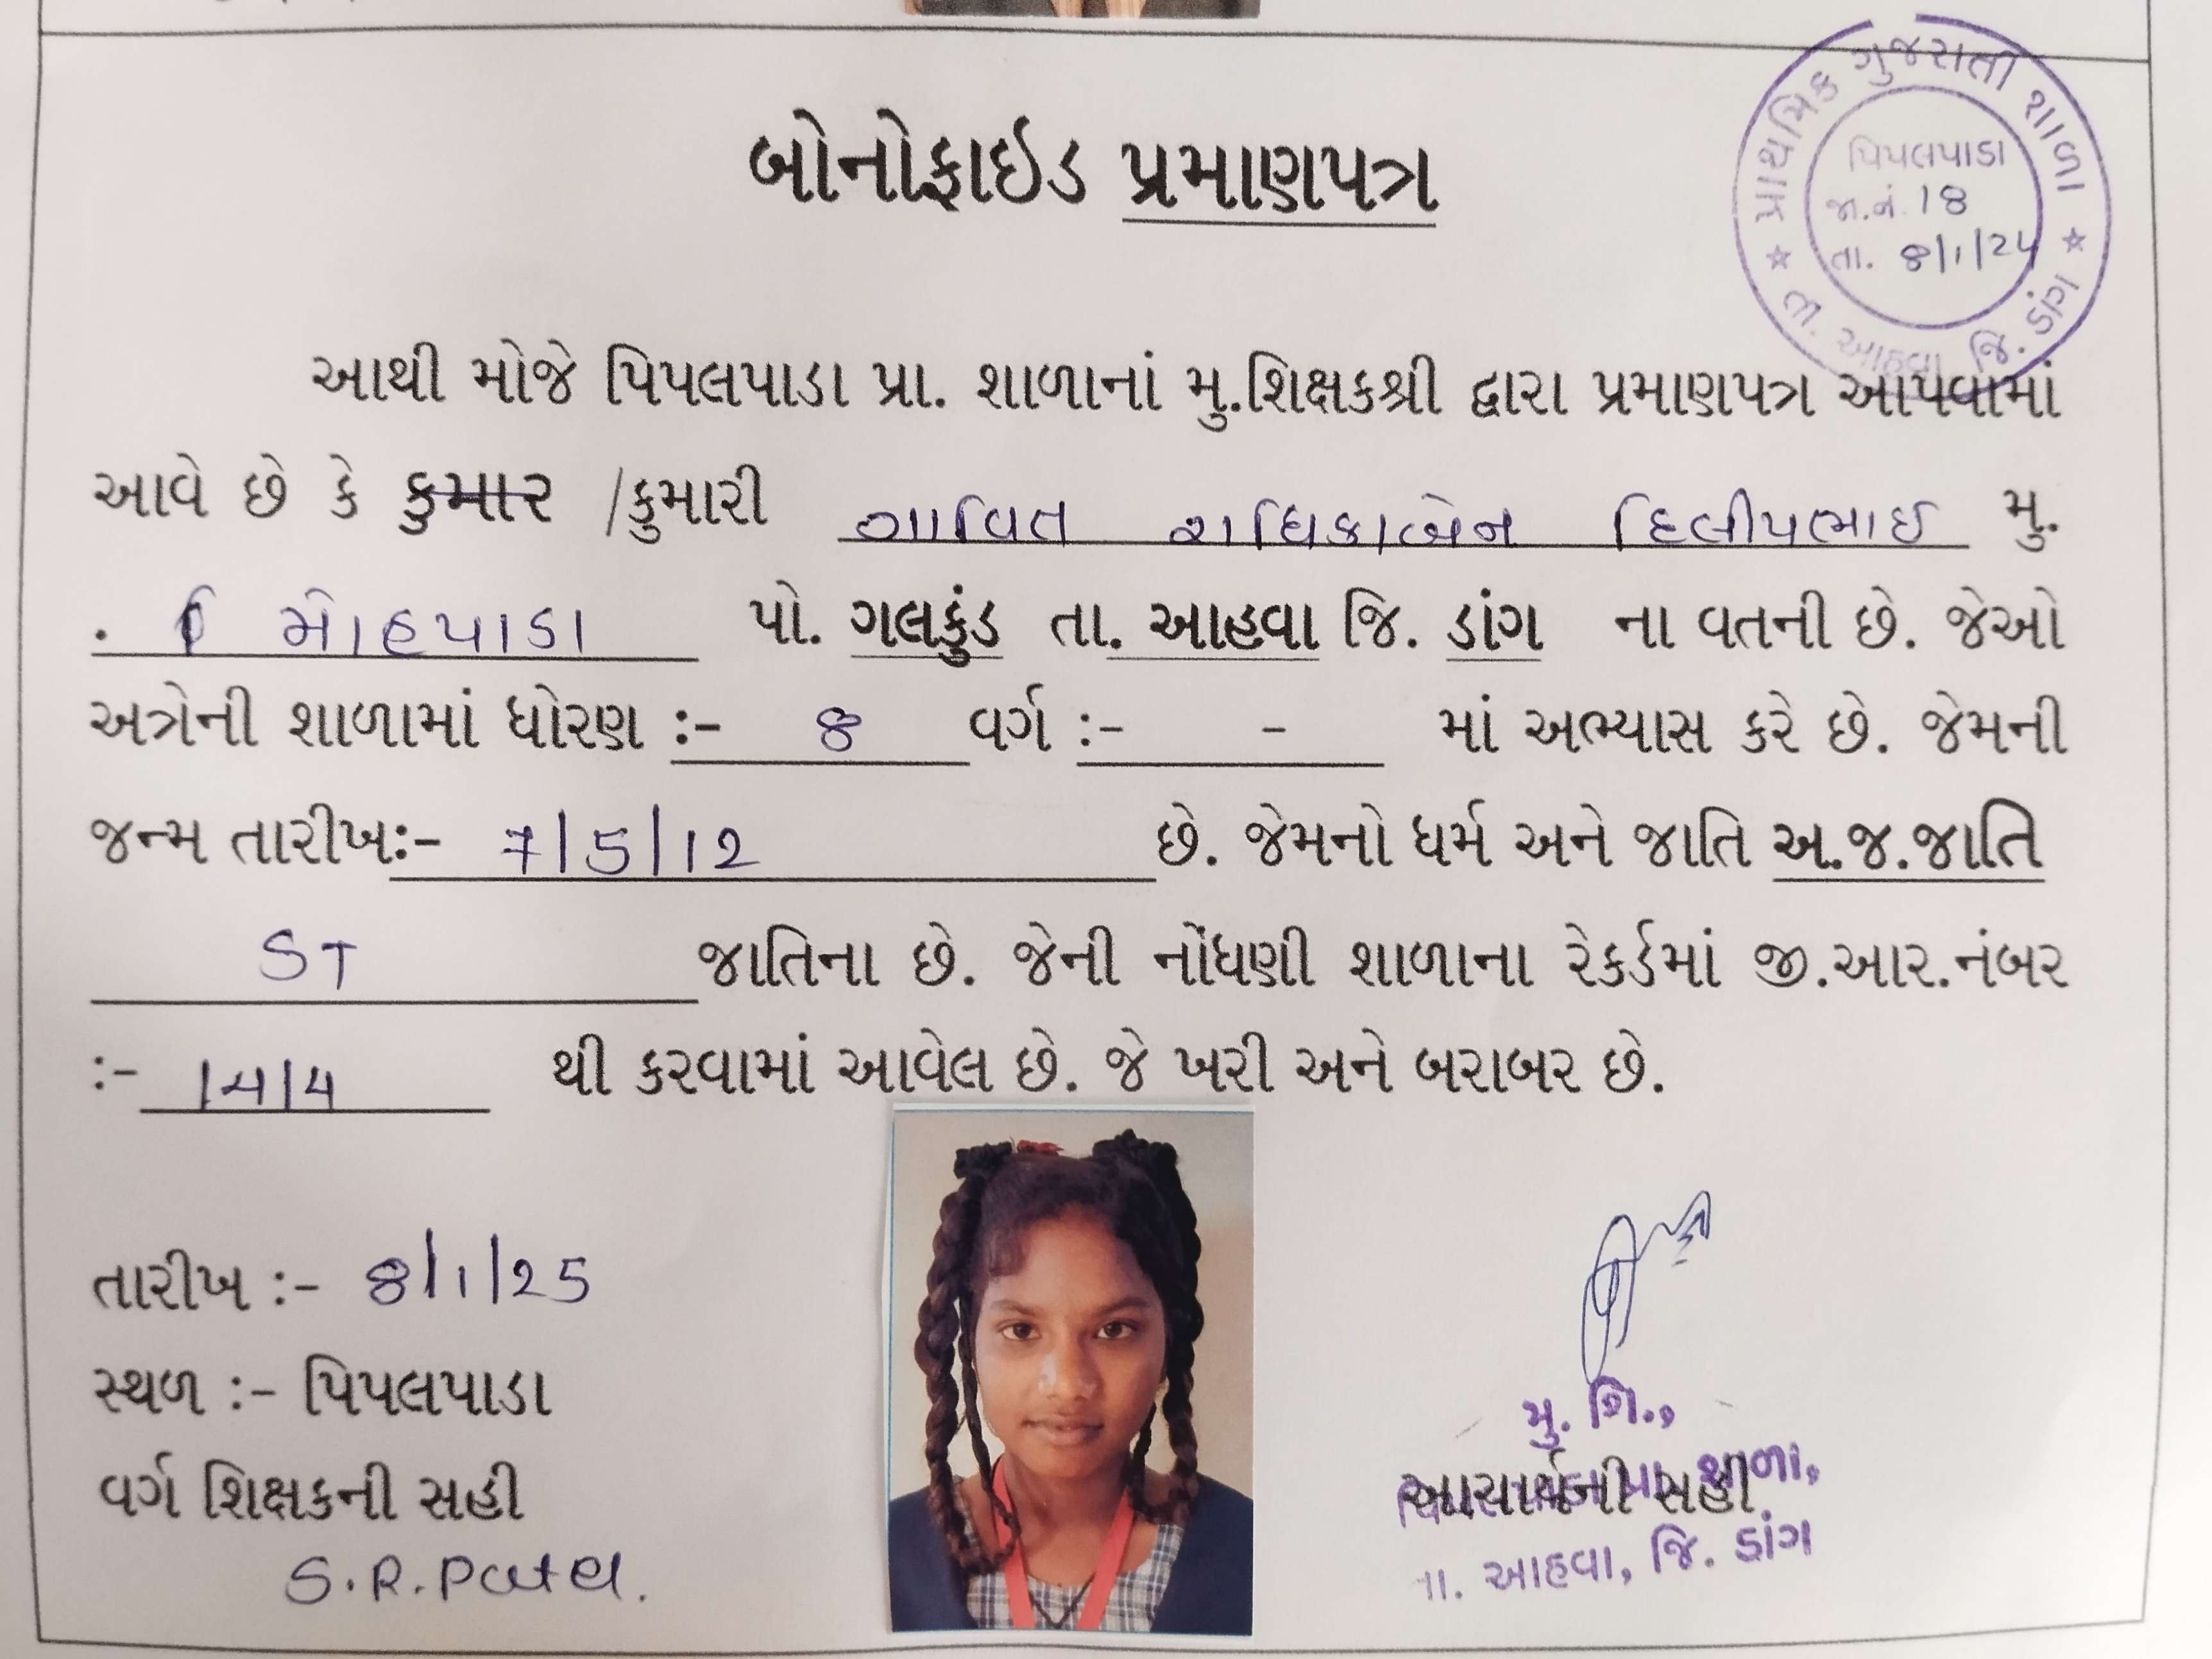 પ્રાથમિક ગુજરાતી શાળા
પિપલપાડા
જા.નં. 18
તા. 8/1/25
તા. આહવા, જિ. ડાંગ
બોનોફાઇડ પ્રમાણપત્ર
આથી મોજે પિપલપાડા પ્રા. શાળાનાં મુ.શિક્ષકશ્રી દ્વારા પ્રમાણપત્ર આપવામાં
આવે છે કે કુમાર /કુમારી ગાવિત રાધિકાબેન દિલીપભાઈ મુ.
મોહપાડા પો. ગલકુંડ તા. આહવા જિ. ડાંગ ના વતની છે. જેઓ
અત્રેની શાળામાં ધોરણ :- 8 વર્ગ :- - માં અભ્યાસ કરે છે. જેમની
જન્મ તારીખ:- 7/5/12 છે. જેમનો ધર્મ અને જાતિ અ.જ.જાતિ
ST જાતિના છે. જેની નોંધણી શાળાના રેકર્ડમાં જી.આર.નંબર
:- થી કરવામાં આવેલ છે. જે ખરી અને બરાબર છે.
તારીખ :- 8/1/25
સ્થળ :- પિપલપાડા
વર્ગ શિક્ષકની સહી
S.R.Patel.
મુ. શિ.,
આચાર્યની સહી
શાળા,
તા. આહવા, જિ. ડાંગ